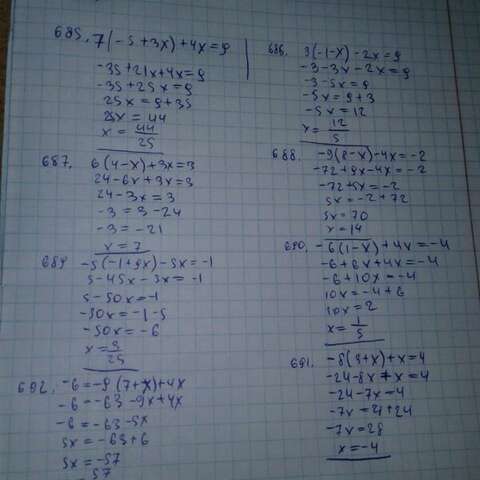 685. 7(-5+3x)+4x=9
-35+21x+4x=9
-35+25x=9
25x=9+35
25x=44
x=44/25
686. 3(-1-x)-2x=9
-3-3x-2x=9
-3-5x=9
-5x=9+3
-5x=12
x=12/5
687. 6(4-x)+3x=3
24-6x+3x=3
24-3x=3
-3=3-24
-3=-21
x=7
688. -9(8-x)-4x=-2
-72+9x-4x=-2
-72+5x=-2
5x=-2+72
5x=70
x=14
689 -5(-1+9x)-5x=-1
5-45x-5x=-1
5-50x=-1
-50x=-1-5
-50x=-6
x=3/25
690. -6(1-x)+4x=-4
-6+6x+4x=-4
-6+10x=-4
10x=-4+6
10x=2
x=1/5
691. -8(3+x)+x=4
-24-8x+x=4
-24-7x=4
-7x=4+24
-7x=28
x=-4
692. -6=-9(7+x)+4x
-6=-63-9x+4x
-6=-63-5x
5x=-63+6
5x=-57
57